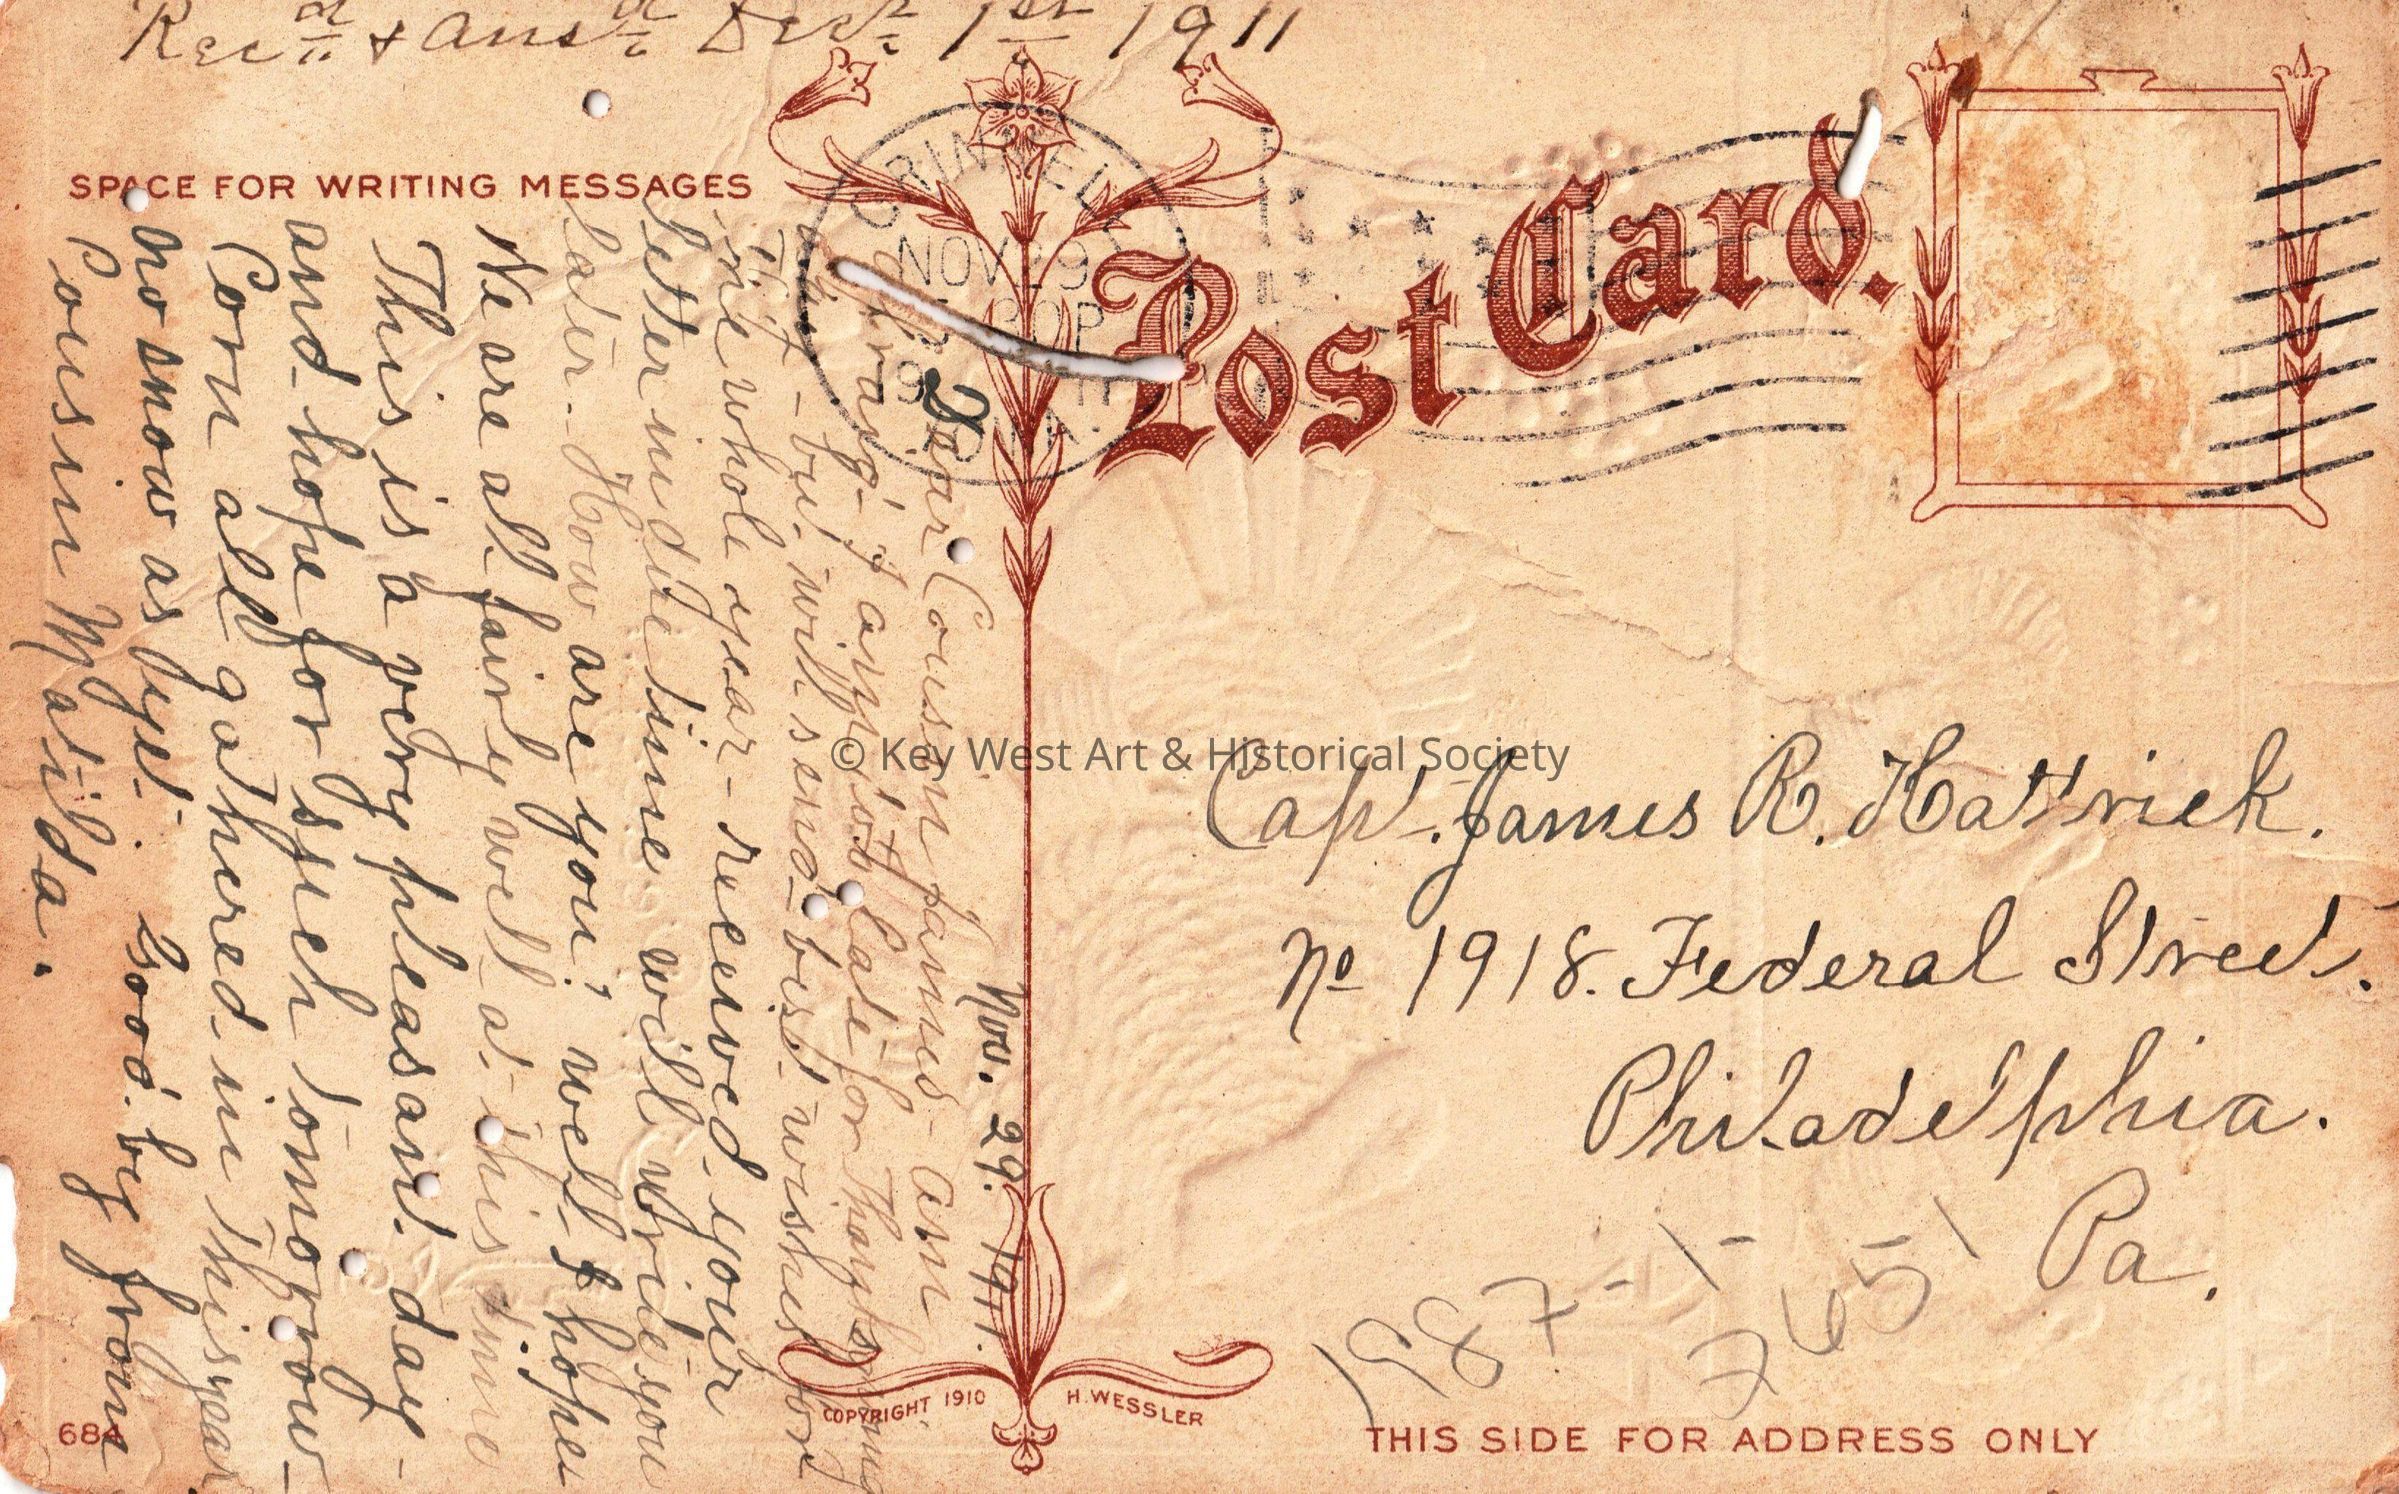 Rec'd & ans'd Dec. 1st 1911
SPACE FOR WRITING MESSAGES
Nov. 29. 1911.
Dear Cousin James - am
afraid I am to late for Thanksgiving
day - but will send best wishes for
The whole year - received your
letter in due time will write you
later - How are you? well I hope
We are all fairly well at this time
This is a very pleasant day -
and hope for such tomorrow -
Corn all gathered in this year
no snow as yet. Good by from
Cousin Matilda.
684
GRINNELL
NOV 29
30P
1911
IA.
Post Card.
© Key West Art & Historical Society
Capt. James R. Hattrick.
No 1918. Federal Street.
Philadelphia.
Pa.
1987-1-
7651
COPYRIGHT 1910 H. WESSLER
THIS SIDE FOR ADDRESS ONLY